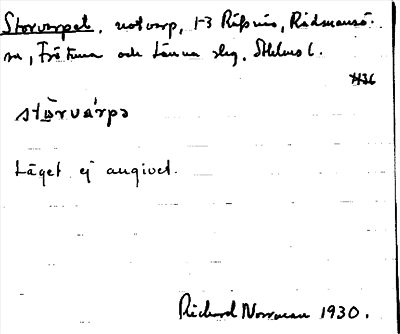 Storvarpet, notvarp, 1-3 Räfsnäs, Rådmansö
sn, Frötuna och Länna slg, Sthlms l.
stòrvárpə
Läget ej angivet.
Richard Norrman 1930.